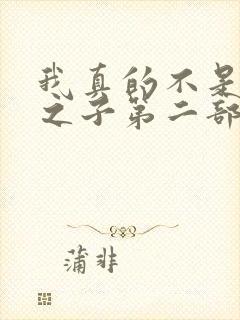 我真的不是
之子第二部
蒲非